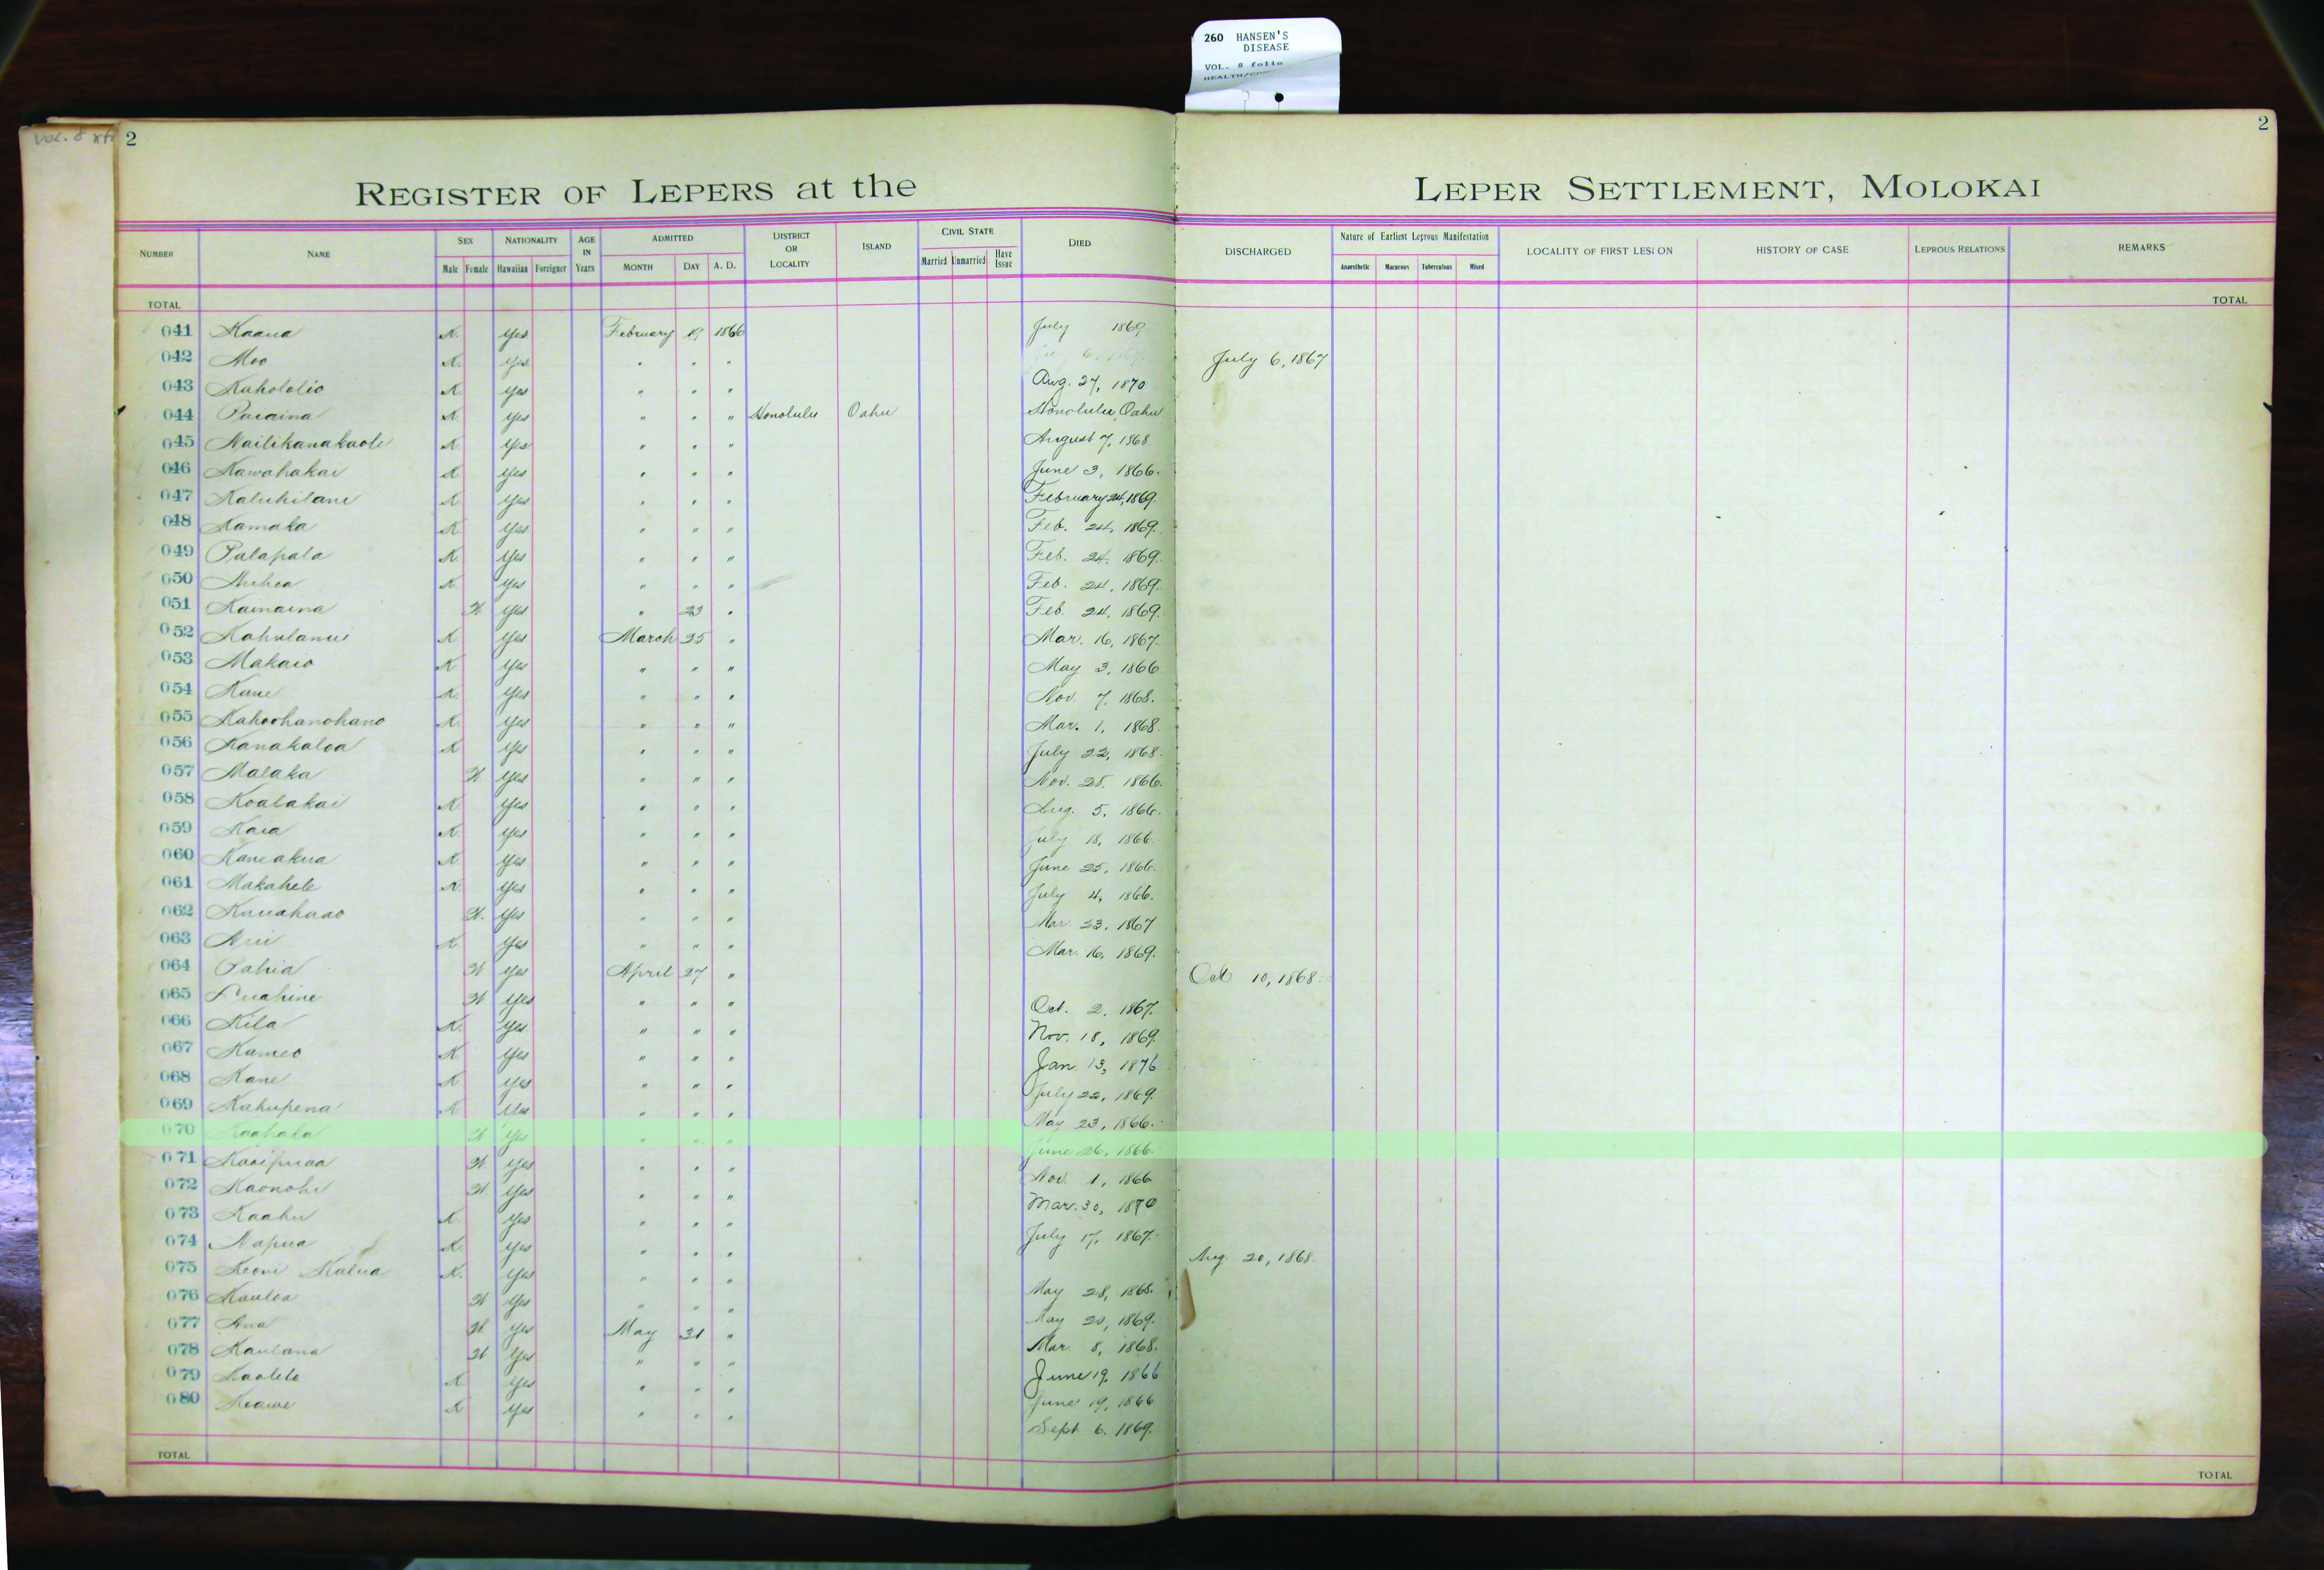 260 HANSEN'S
DISEASE
VOL. 8 folio
2
2
REGISTER OF LEPERS at the LEPER SETTLEMENT, MOLOKAI
NUMBER NAME SEX NATIONALITY AGE IN YEARS ADMITTED DISTRICT OR LOCALITY ISLAND CIVIL STATE DIED DISCHARGED Nature of Earliest Leprous Manifestation LOCALITY OF FIRST LESION HISTORY OF CASE LEPROUS RELATIONS REMARKS
Male Female Hawaiian Foreigner MONTH DAY A. D. Married Unmarried Have Issue Anaesthetic Macurous Tuberculous Mixed
TOTAL TOTAL
041 Kaaua K. Yes February 19 1866 July 1869
042 Moo K. Yes " " " July 6, 1867
043 Kahololio K Yes " " " Aug. 27, 1870
044 Puaaina K Yes " " " Honolulu Oahu Honolulu, Oahu
045 Nailikanakaole K Yes " " " August 7, 1868
046 Kawahakai K Yes " " " June 3, 1866.
047 Kaluhilani K Yes " " " February 24, 1869.
048 Kamaka K Yes " " " Feb. 24, 1869.
049 Palapala K Yes " " " Feb. 24, 1869.
050 Auhea K Yes " " " Feb. 24, 1869.
051 Kamaina W Yes " 23 " Feb. 24, 1869.
052 Kahulanui K Yes March 25 " Mar. 16, 1867.
053 Makaio K Yes " " " May 3, 1866
054 Kane K. Yes " " " Nov. 7, 1868.
055 Kahoohanohano K. Yes " " " Mar. 1, 1868.
056 Kanakaloa K Yes " " " July 22, 1868.
057 Malaka W Yes " " " Nov. 28, 1866.
058 Koalakai K Yes " " " Aug. 5, 1866.
059 Kaia K. Yes " " " July 18, 1866.
060 Kaneakua K Yes " " " June 25, 1866.
061 Makahele K Yes " " " July 4, 1866.
062 Kauahaao W. Yes " " " Mar. 23, 1867
063 Aui K Yes " " " Mar. 16, 1869.
064 Pahia W Yes April 27 " Oct 10, 1868.
065 Luahine W Yes " " " Oct. 2, 1867.
066 Kila K. Yes " " " Nov. 18, 1869.
067 Kameo K Yes " " " Jan. 13, 1876
068 Kane K Yes " " " July 22, 1869.
069 Kahupena K Yes " " " May 23, 1866.
070 Kaahala W Yes " " " June 26, 1866.
071 Kaaipuaa W Yes " " " Nov. 1, 1866
072 Kaonohi W Yes " " " Mar. 30, 1870
073 Kaahu K. Yes " " " July 17, 1867.
074 Napua K Yes " " " Aug. 20, 1868.
075 Keoni Kalua K. Yes " " " May 28, 1868.
076 Kauloa W Yes " " " May 20, 1869.
077 Ana W. Yes May 31 " Mar. 8, 1868.
078 Kaulana W Yes " " " June 19, 1866
079 Kaolelo K Yes " " " June 19, 1866
080 Keawe K Yes " " " Sept. 6, 1869.
TOTAL TOTAL